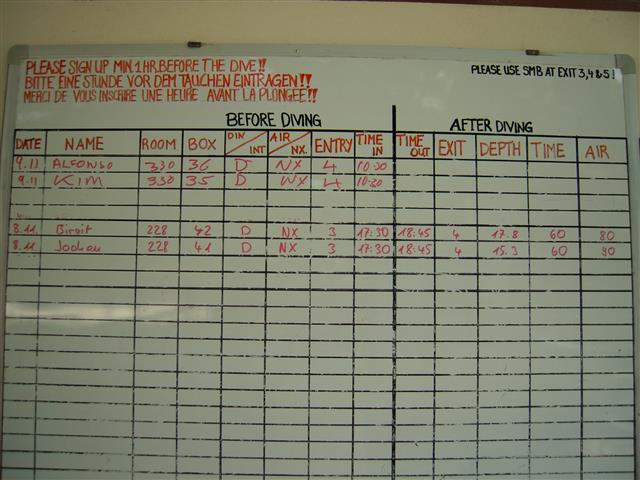 PLEASE SIGN UP MIN 1 HR. BEFORE THE DIVE!!
BITTE EINE STUNDE VOR DEM TAUCHEN EINTRAGEN!!
MERCI DE VOUS INSCRIRE UNE HEURE AVANT LA PLONGEE!!
PLEASE USE SMB AT EXIT 3,4 & 5!
BEFORE DIVING AFTER DIVING
DATE NAME ROOM BOX DIN/INT AIR/NX. ENTRY TIME IN TIME OUT EXIT DEPTH TIME AIR
9.11 ALFONSO 330 36 D NX 4 10:30
9.11 KIM 330 35 D NX 4 10:30
8.11. Birgit 228 42 D NX 3 17:30 18:45 4 17.8 60 80
8.11. Jochen 228 41 D NX 3 17:30 18:45 4 15.3 60 90